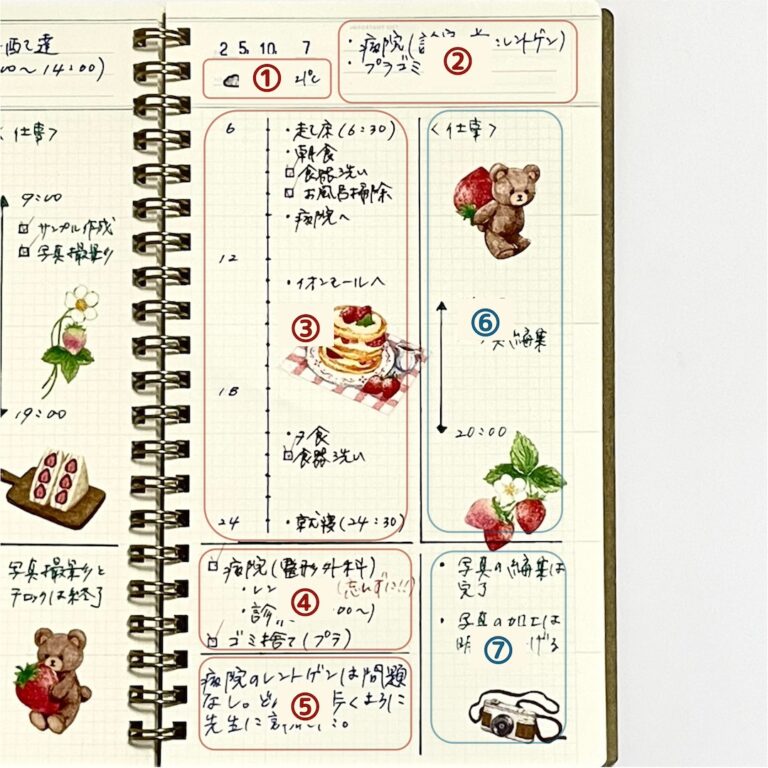 配達
00〜14:00)
〈仕事〉
9:00
サンプル作成
写真撮影
19:00
写真撮影と
チェックは終了
25. 10. 7
① 21℃
・病院( レントゲン)
・プラゴミ
②
6
・起床(6:30)
・朝食
食器洗い
お風呂掃除
・病院へ
12
・イオンモールへ
③
18
・夕食
食器洗い
24
・就寝(24:30)
〈仕事〉
⑥
編集
20:00
病院(整形外科)
・レン (忘れずに!!)
・診 ④ 00〜)
ゴミ捨て(プラ)
病院のレントゲンは問題
なし。 ⑤ 歩くように
先生に
・写真の編集は
完了
・写真の加工は
明 ⑦ げる